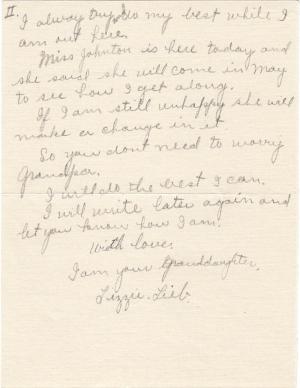 II.
I alway try do my best while I
am out here.
Miss Johnton is here today and
she said she will come in May
to see how I get along.
If I am still unhappy she will
make a change in it.
So you dont need to worry
Grandpa.
I will do the best I can.
I will write later again and
let you know how I am.
With love,
I am your Granddaughter,
Lizzie Lieb.